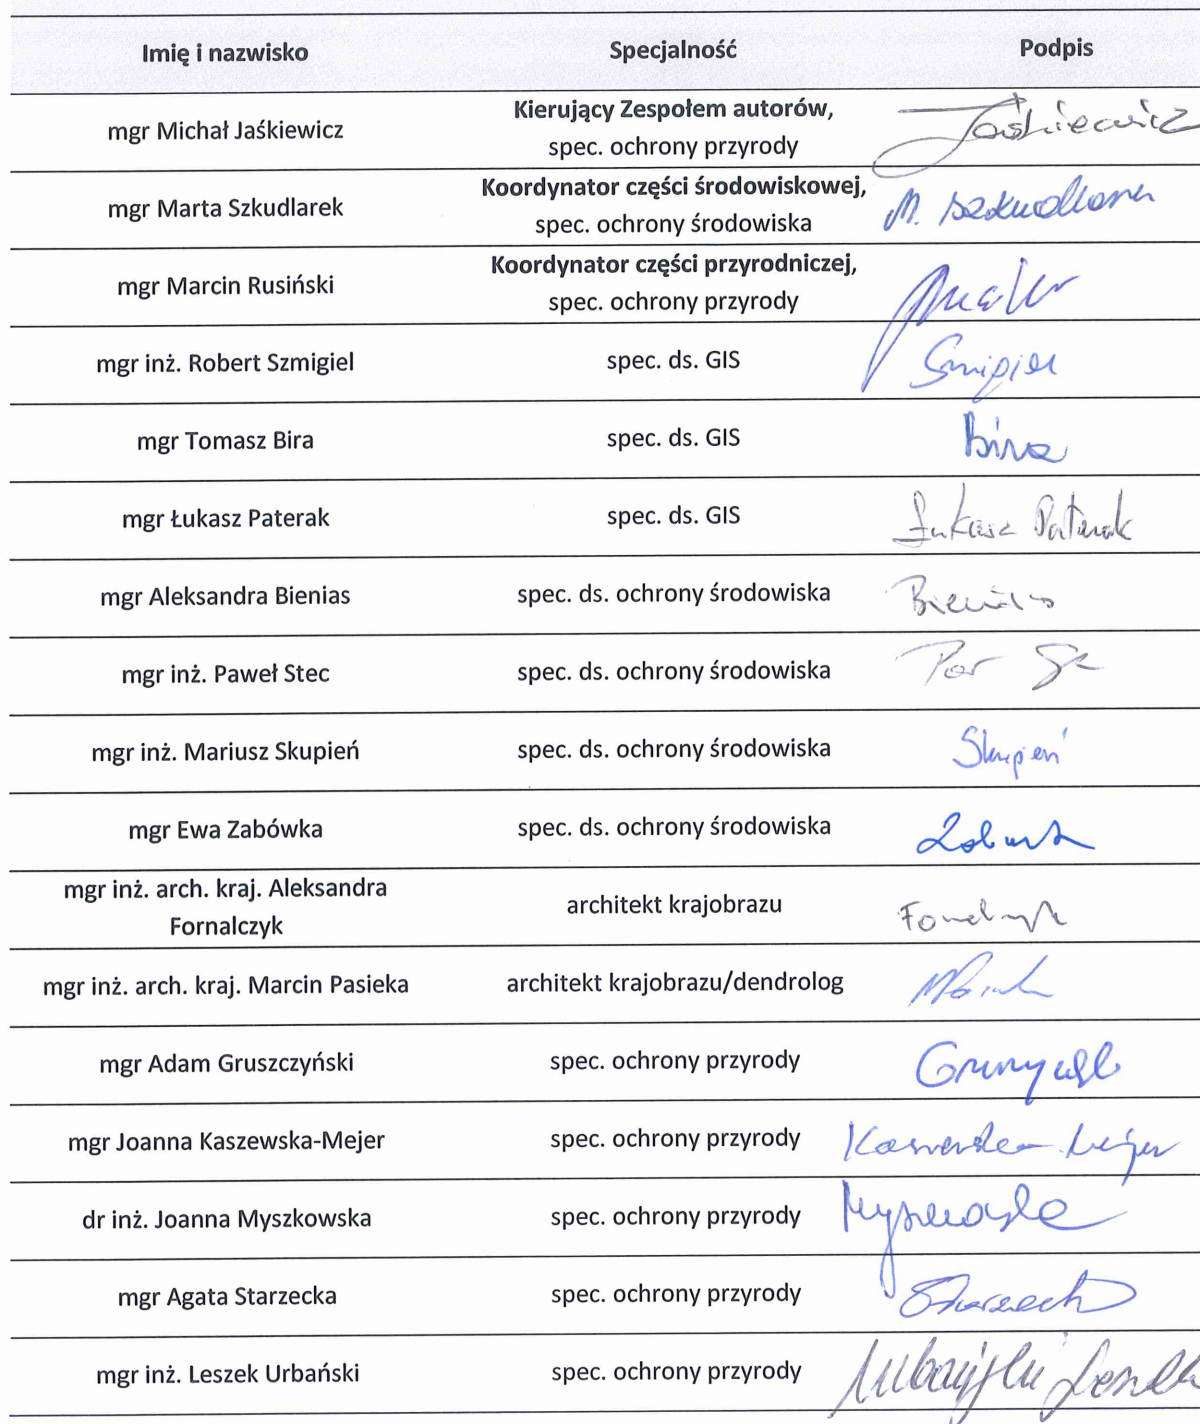 Imię i nazwisko Specjalność Podpis
mgr Michał Jaśkiewicz Kierujący Zespołem autorów, Jaśkiewicz
spec. ochrony przyrody
mgr Marta Szkudlarek Koordynator części środowiskowej, M. Szkudlarek
spec. ochrony środowiska
mgr Marcin Rusiński Koordynator części przyrodniczej,
spec. ochrony przyrody
mgr inż. Robert Szmigiel spec. ds. GIS
mgr Tomasz Bira spec. ds. GIS Bira
mgr Łukasz Paterak spec. ds. GIS Łukasz Paterak
mgr Aleksandra Bienias spec. ds. ochrony środowiska Bienias
mgr inż. Paweł Stec spec. ds. ochrony środowiska
mgr inż. Mariusz Skupień spec. ds. ochrony środowiska Skupień
mgr Ewa Zabówka spec. ds. ochrony środowiska
mgr inż. arch. kraj. Aleksandra
Fornalczyk architekt krajobrazu
mgr inż. arch. kraj. Marcin Pasieka architekt krajobrazu/dendrolog
mgr Adam Gruszczyński spec. ochrony przyrody
mgr Joanna Kaszewska-Mejer spec. ochrony przyrody Kaszewska-Mejer
dr inż. Joanna Myszkowska spec. ochrony przyrody
mgr Agata Starzecka spec. ochrony przyrody
mgr inż. Leszek Urbański spec. ochrony przyrody